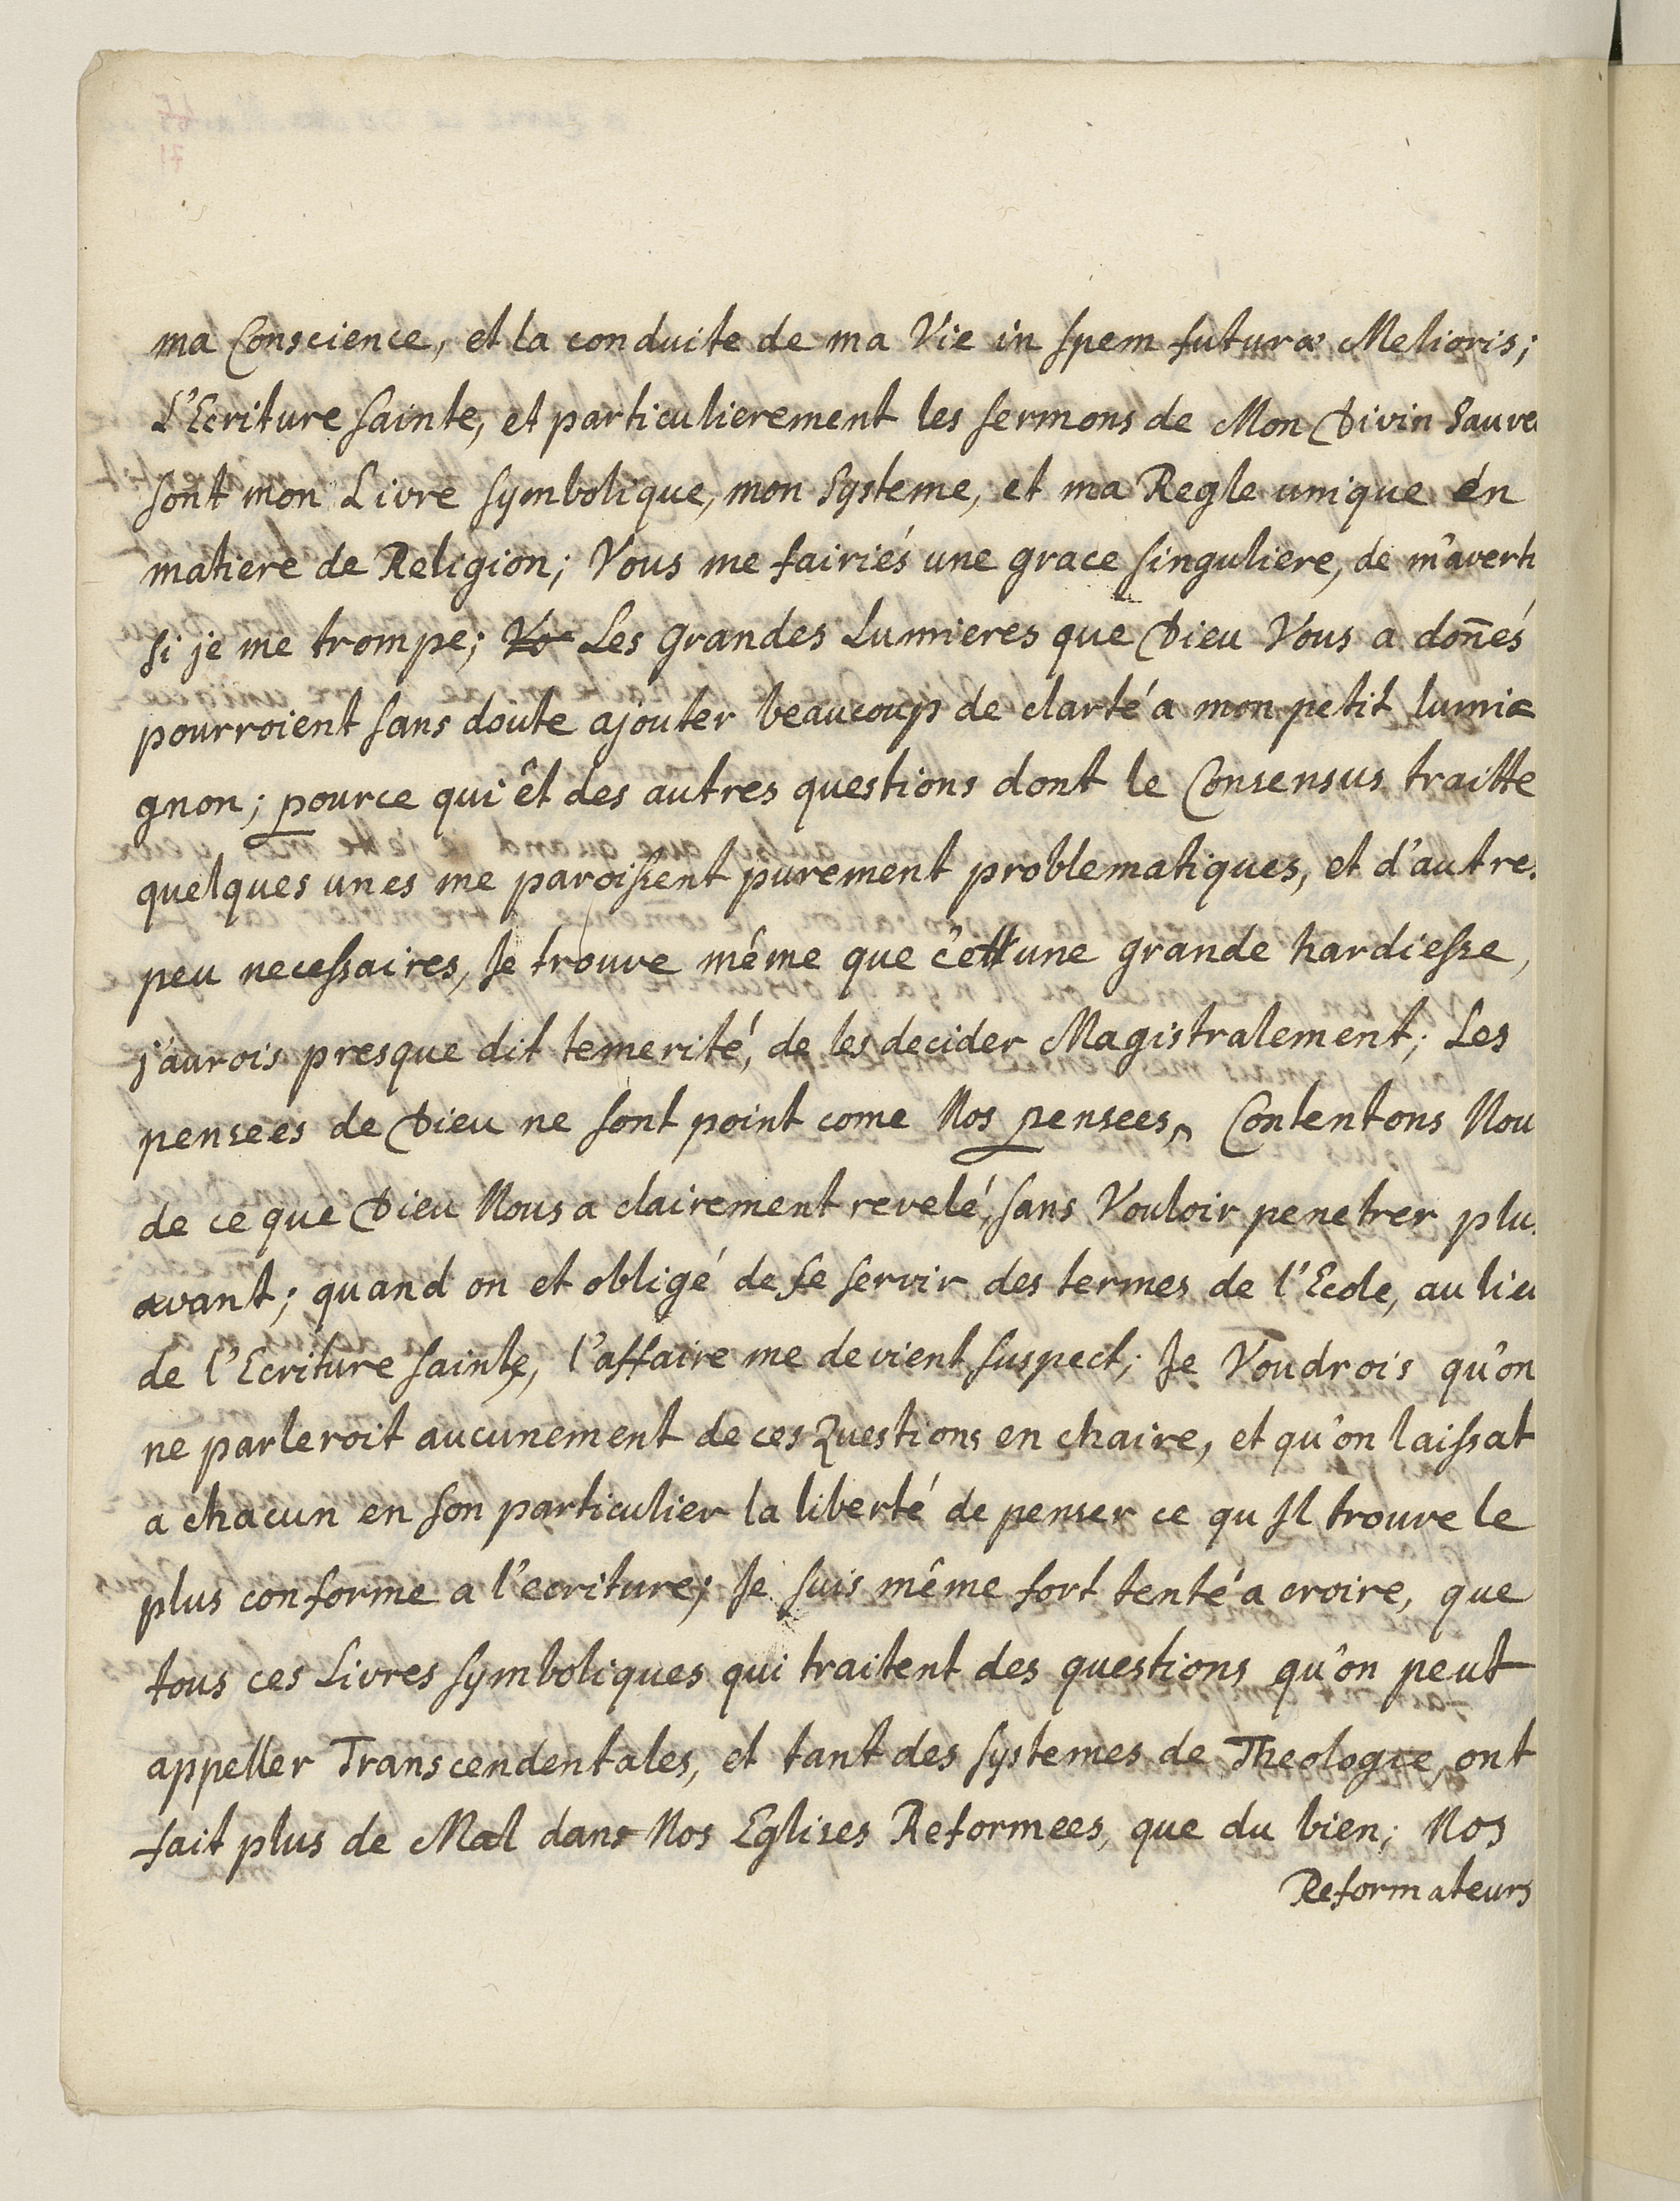 ma Conscience, et la conduite de ma Vie in spem futuræ Melioris;
L'Ecriture sainte, et particulierement les sermons de Mon Divin Sauve
sont mon Livre symbolique, mon Systeme, et ma Regle unique en
matiere de Religion; Vous me fairiés une grace singuliere, de m'averti
si je me trompe; Vo Les grandes Lumieres que Dieu Vous a don̄és
pourroient sans doute ajouter beaucoup de clarté a mon petit lumi=
gnon; pource qui êt des autres questions dont le Consensus traitte
quelques unes me paroissent purement problematiques, et d'autres
peu necessaires, Je trouve même que c'ett une grande hardiesse,
j'aurois presque dit temerité, de les decider Magistralement; Les
pensees de Dieu ne sont point come Nos pensees, Contentons Nou
de ce que Dieu Nous a clairement revelé, sans Vouloir penetrer plus
avant; quand on et obligé de se servir des termes de l'Ecole, au lieu
de l'Ecriture sainte, l'affaire me devient suspect; Je Voudrois qu'on
ne parleroit aucunement de ces Questions en chaire, et qu'on laissat
a chacun en son particulier la liberté de penser ce qu Il trouve le
plus conforme a l'ecriture; Je suis même fort tenté a croire, que
tous ces Livres symboliques qui traitent des questions qu'on peut
appeller Transcendentales, et tant des systemes de Theologie, ont
fait plus de Mal dans Nos Eglises Reformees, que du bien; Nos
Reformateurs